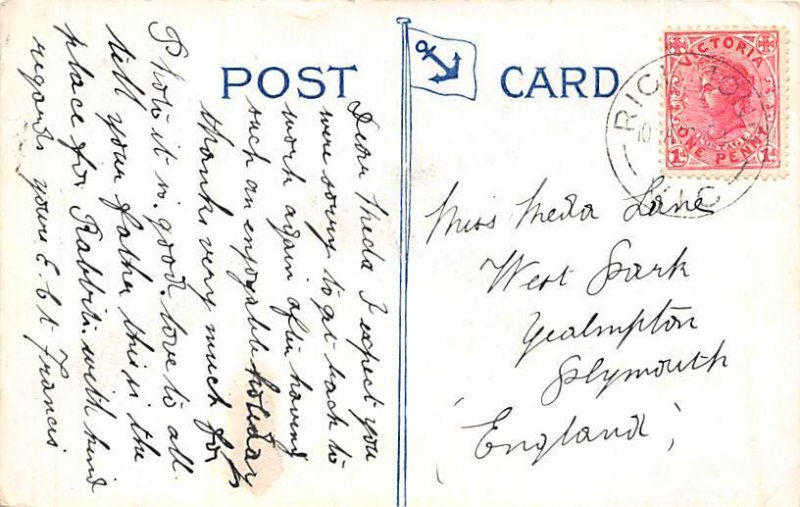 POST CARD
VICTORIA
POSTAGE
ONE PENNY
1d 1d
RICHMO
VIC
Dear Meda I expect you
were sorry to get back to
work again after having
such an enjoyable holiday
thanks very much for
Photo it is good. love to all
tell your father this is the
place for Rabbits. with kind
regards yours E. &
Francis
Miss Meda Lane
West Park
Yealmpton
Plymouth
England